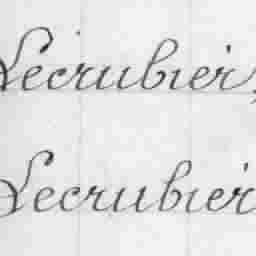 Lecrubier,
Lecrubier